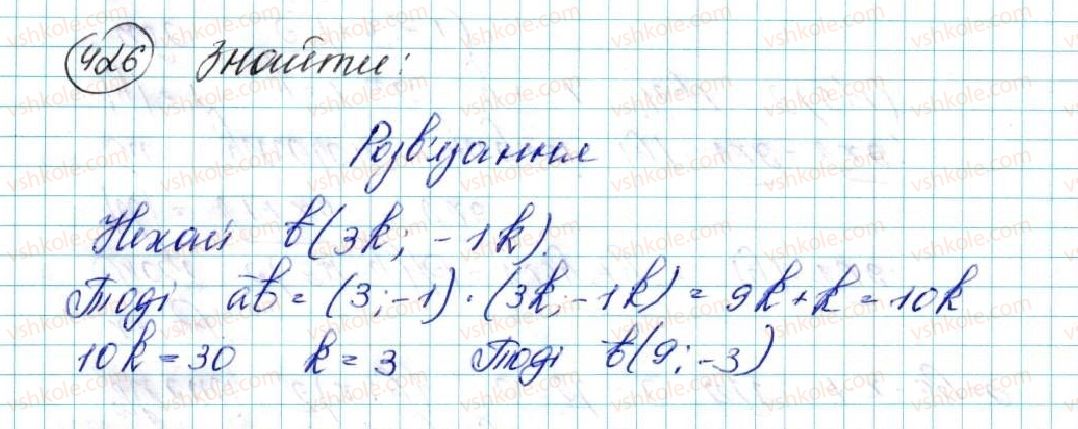 426 Знайти:
Розв'язання
Нехай b(3k; -1k).
Тоді ab = (3; -1) · (3k; -1k) = 9k + k = 10k
10k = 30 k = 3 Тоді b(9; -3)
vshkole.com